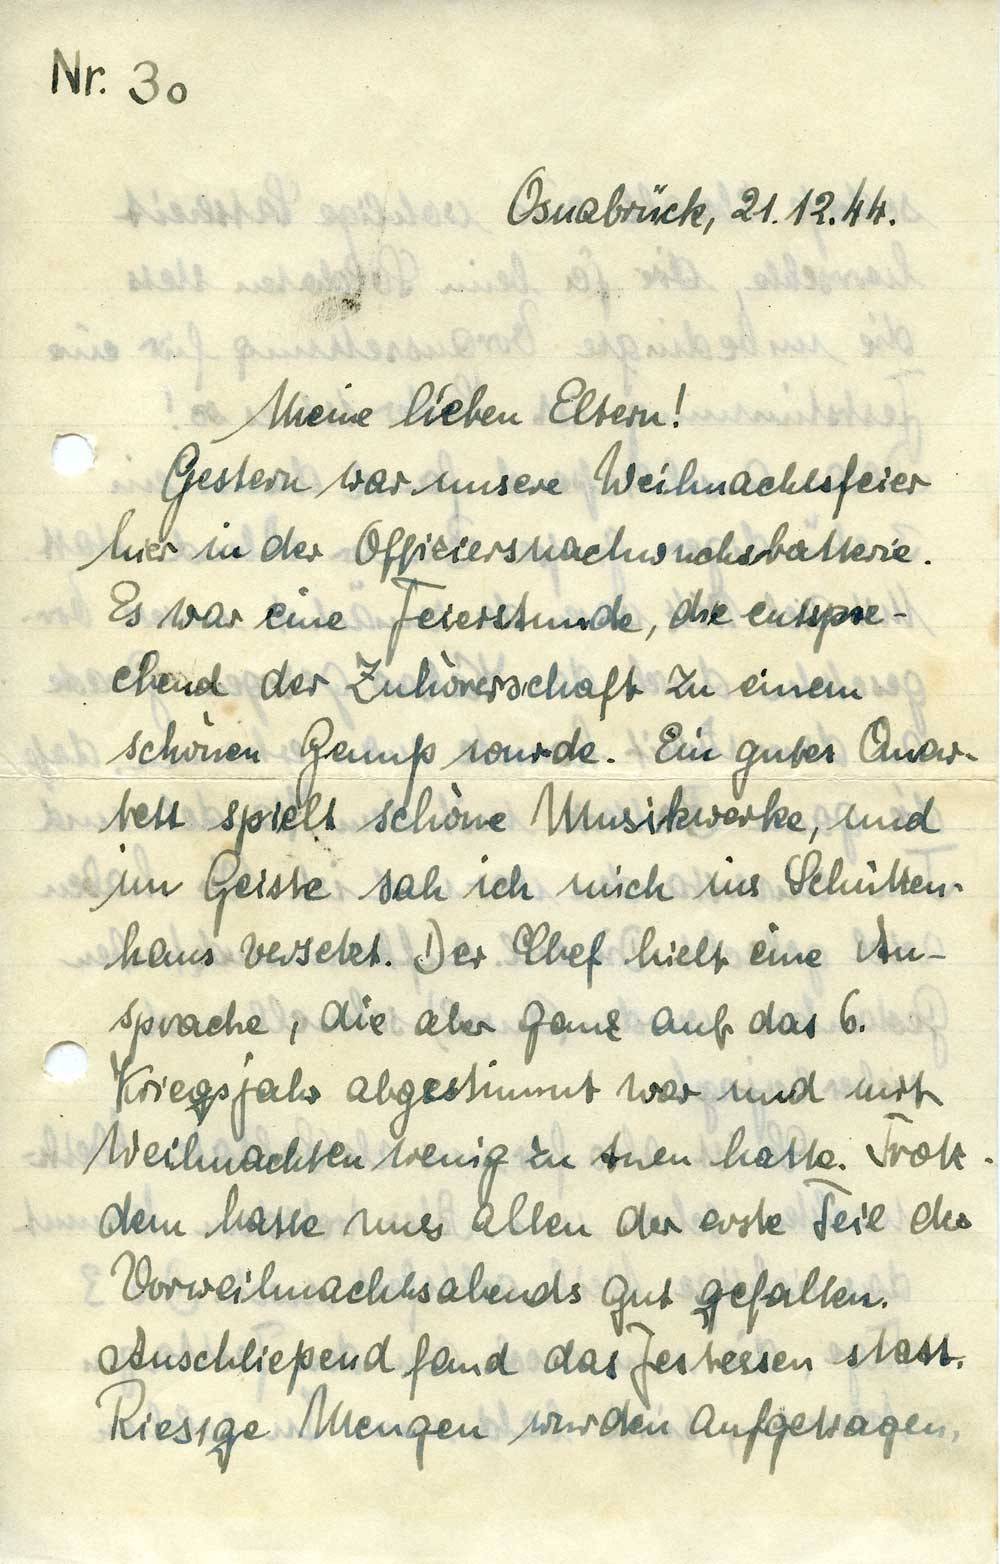 Nr. 30
Osnabrück, 21.12.44.
Meine lieben Eltern!
Gestern war unsere Weihnachtsfeier
hier in der Offiziersnachwuchsbatterie.
Es war eine Feierstunde, die entspre-
chend der Zuhörerschaft zu einem
schönen Genuß wurde. Ein gutes Quar-
tett spielt schöne Musikwerke, und
im Geiste sah ich mich ins Schützen-
haus versetzt. Der Chef hielt eine An-
sprache, die aber ganz auf das 6.
Kriegsjahr abgestimmt war und mit
Weihnachten wenig zu tuen hatte. Trotz-
dem hatte uns allen der erste Teil des
Vorweihnachtsabends gut gefallen.
Anschließend fand das Festessen statt.
Riesige Mengen wurden aufgetragen,